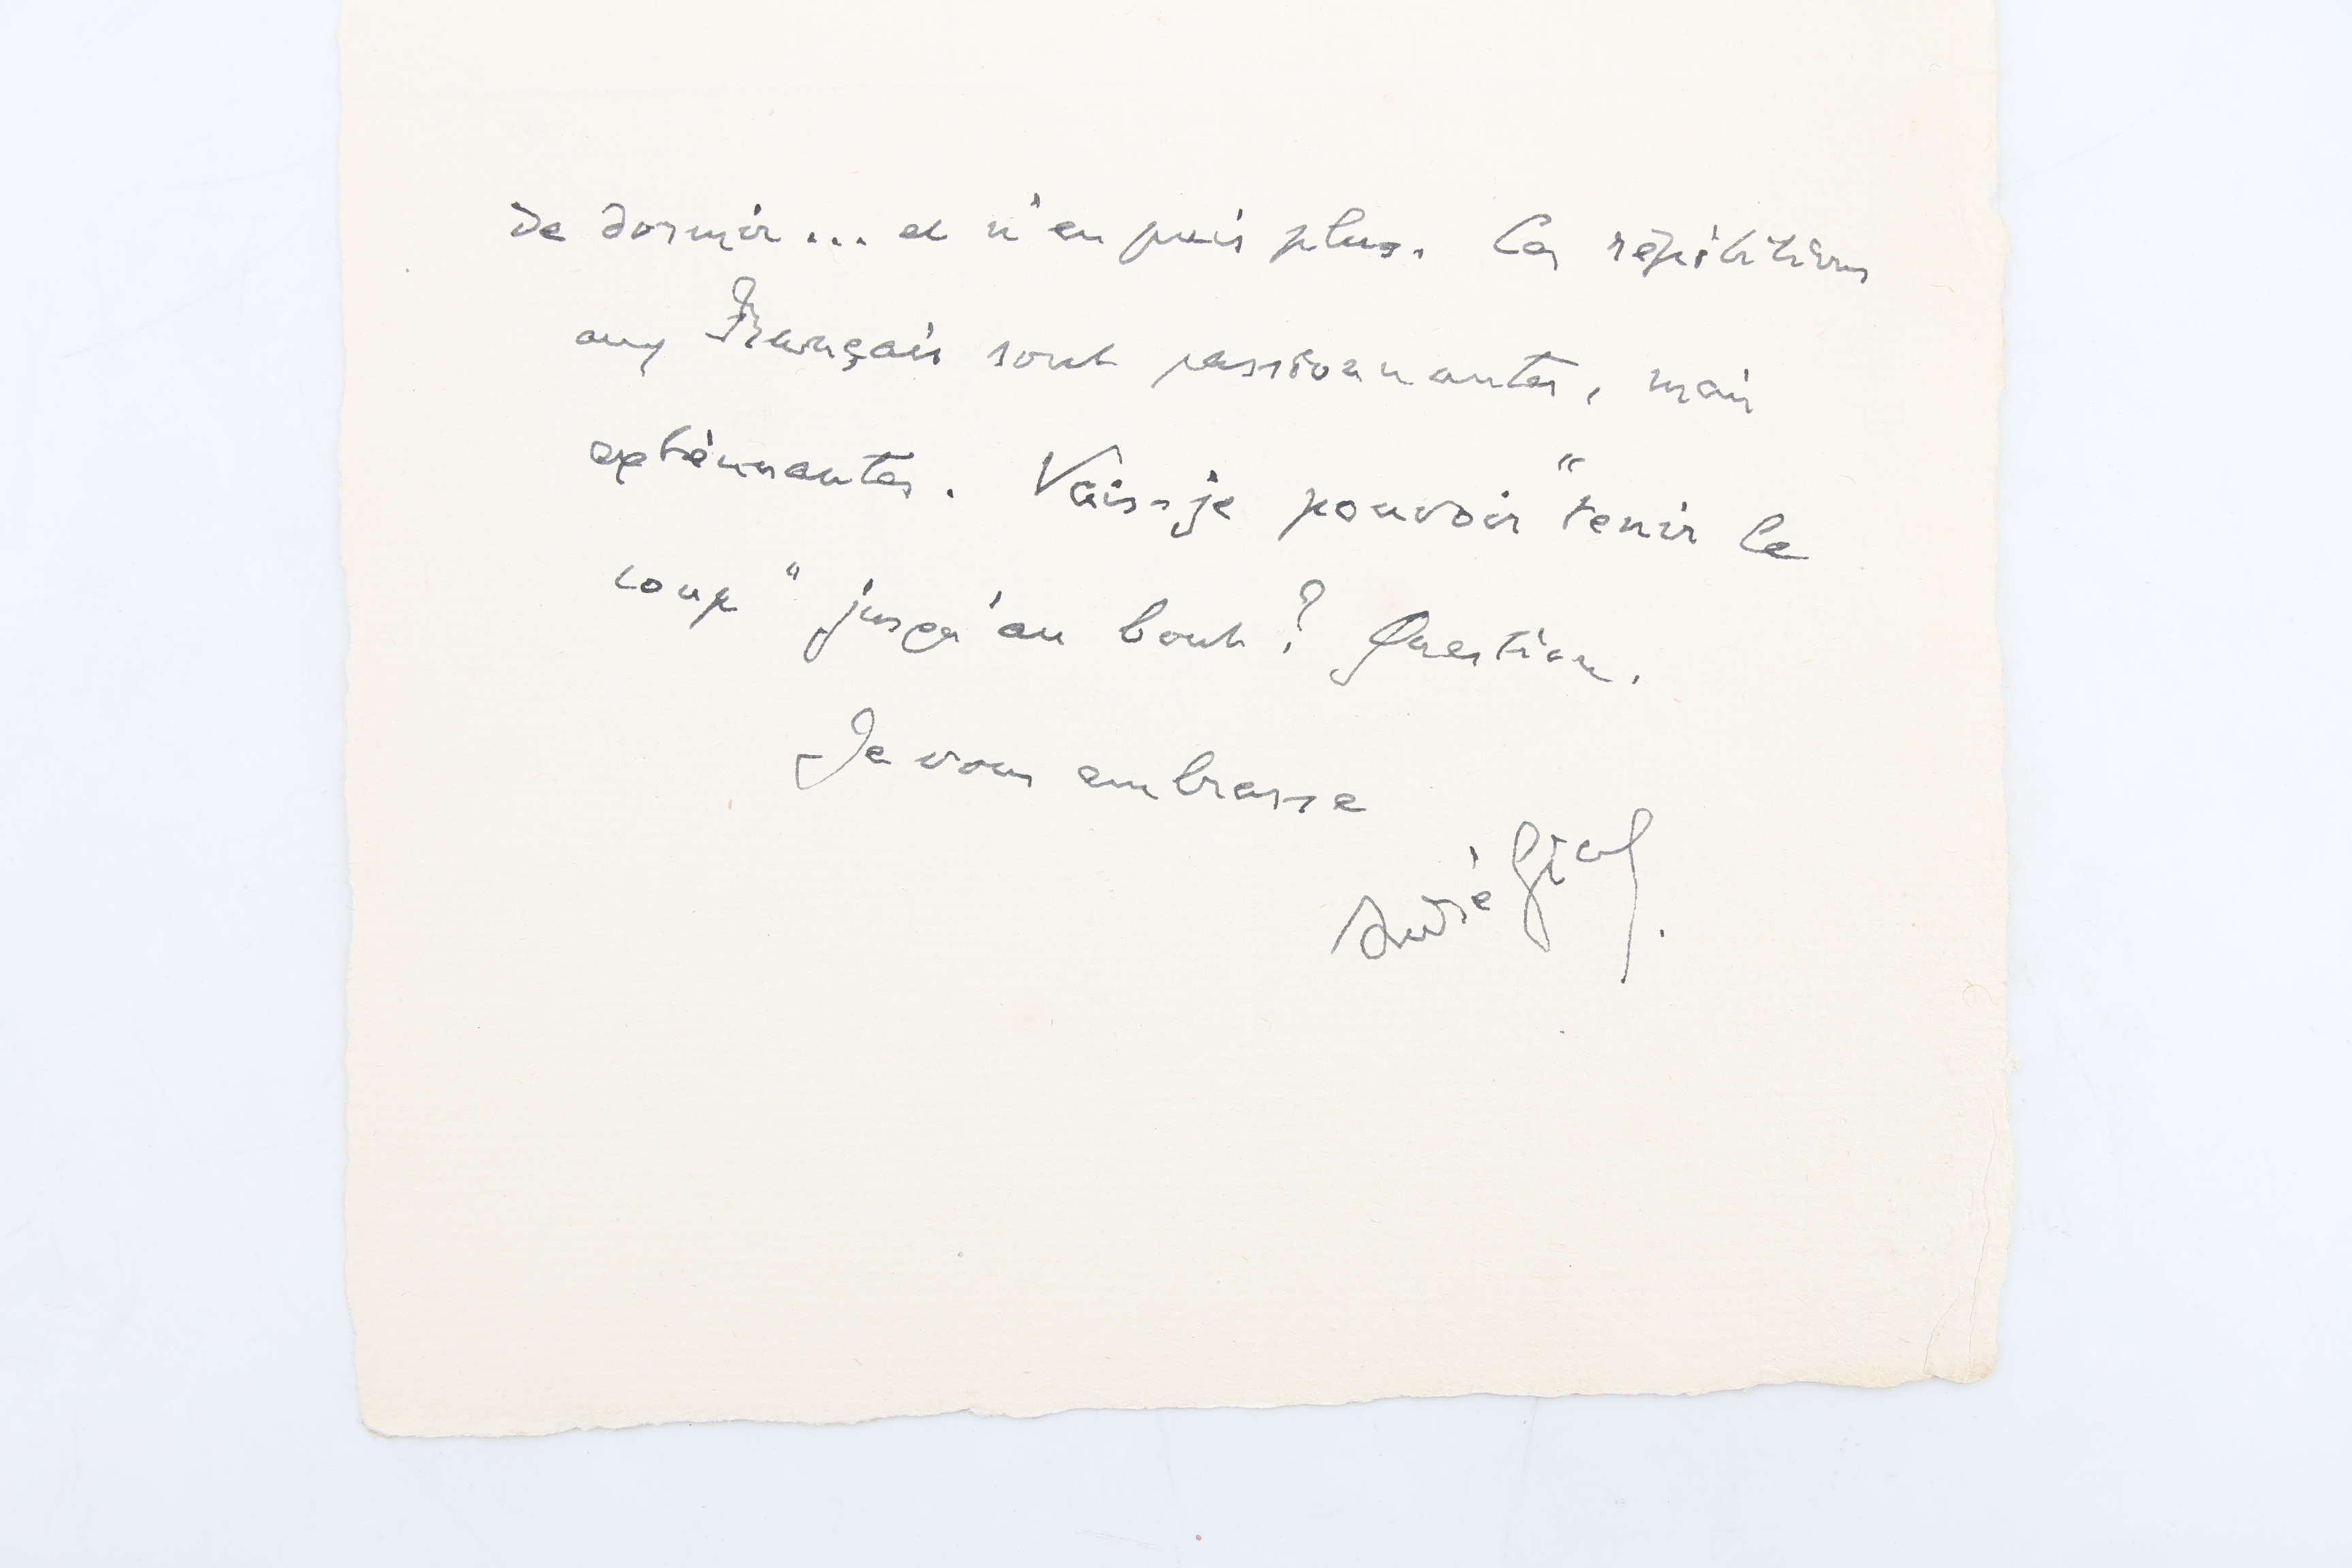 de dormir... et n'en puis plus. Les répétitions
aux Français sont passionnantes, mais
exténuantes. Vais-je pouvoir "tenir le
coup" jusqu'au bout ? Question.
Je vous embrasse
André Gide.